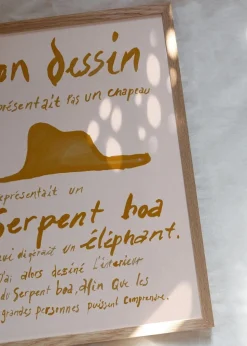 on dessin
présentait pas un chapeau
eprésentait un
Serpent boa
ui digérait un éléphant.
J'ai alors dessiné l'intérieur
du Serpent boa, afin que les
grandes personnes puissent comprendre.